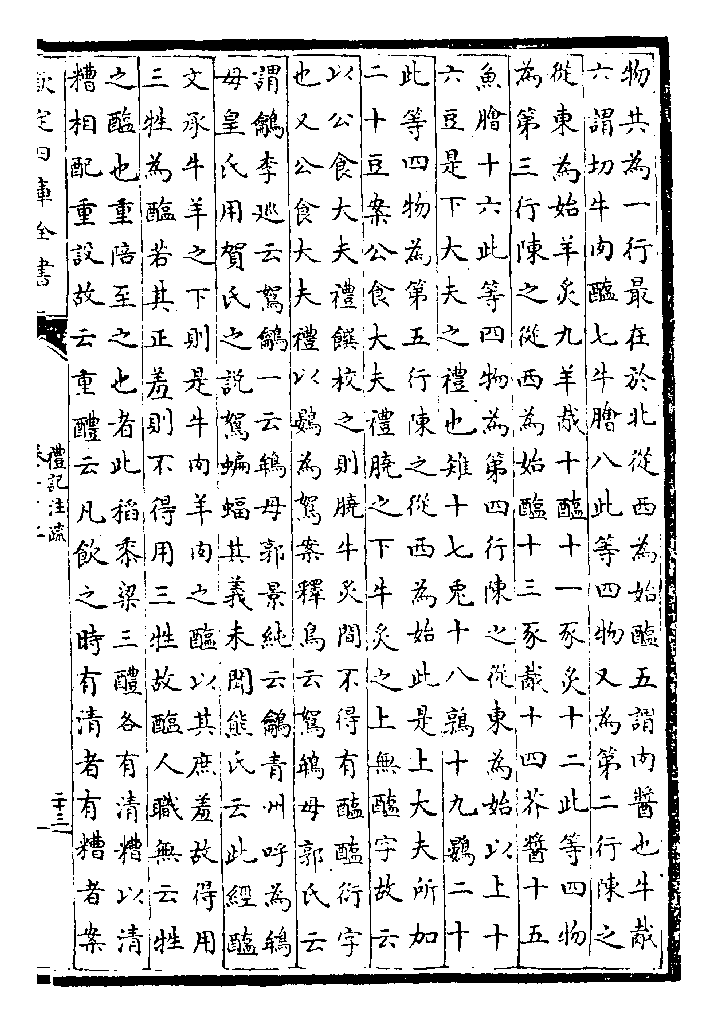 物共為一行最在於北從西為始醢五謂肉醬也牛胾
六謂切牛肉醢七牛膾八此等四物又為第二行陳之
從東為始羊炙九羊胾十醢十一豕炙十二此等四物
為第三行陳之從西為始醢十三豕胾十四芥醬十五
魚膾十六此等四物為第四行陳之從東為始以上十
六豆是下大夫之禮也雉十七兔十八鶉十九鷃二十
此等四物為第五行陳之從西為始此是上大夫所加
二十豆案公食大夫禮膮之下牛炙之上無醢字故云
以公食大夫禮饌校之則膮牛炙間不得有醢醢衍字
也又公食大夫禮以鷃為鴽案釋鳥云鴽鴾母郭氏云
謂鶕李廵云鴽鶕一云鴾母郭景純云鶕青州呼為鴾
母皇氏用賀氏之說鴽蝙蝠其義未聞熊氏云此經醢
文承牛羊之下則是牛肉羊肉之醢以其庶羞故得用
三牲為醢若其正羞則不得用三牲故醢人職無云牲
之醢也重陪至之也者此稻黍梁三醴各有清糟以清
糟相配重設故云重醴云凡飲之時有清者有糟者案
欽定四庫全書
禮記注疏
二十三